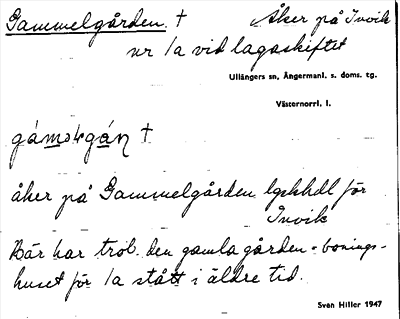 Gammelgården † Åker på Invik
nr 1a vid lagaskiftet
Ullångers sn, Ångermanl. s. doms. tg.
Västernorrl. l.
åker på Gammelgården lgskhdl för
Invik
Här har trol. den gamla gården = bonings-
huset för 1a stått i äldre tid.
Sven Hiller 1947